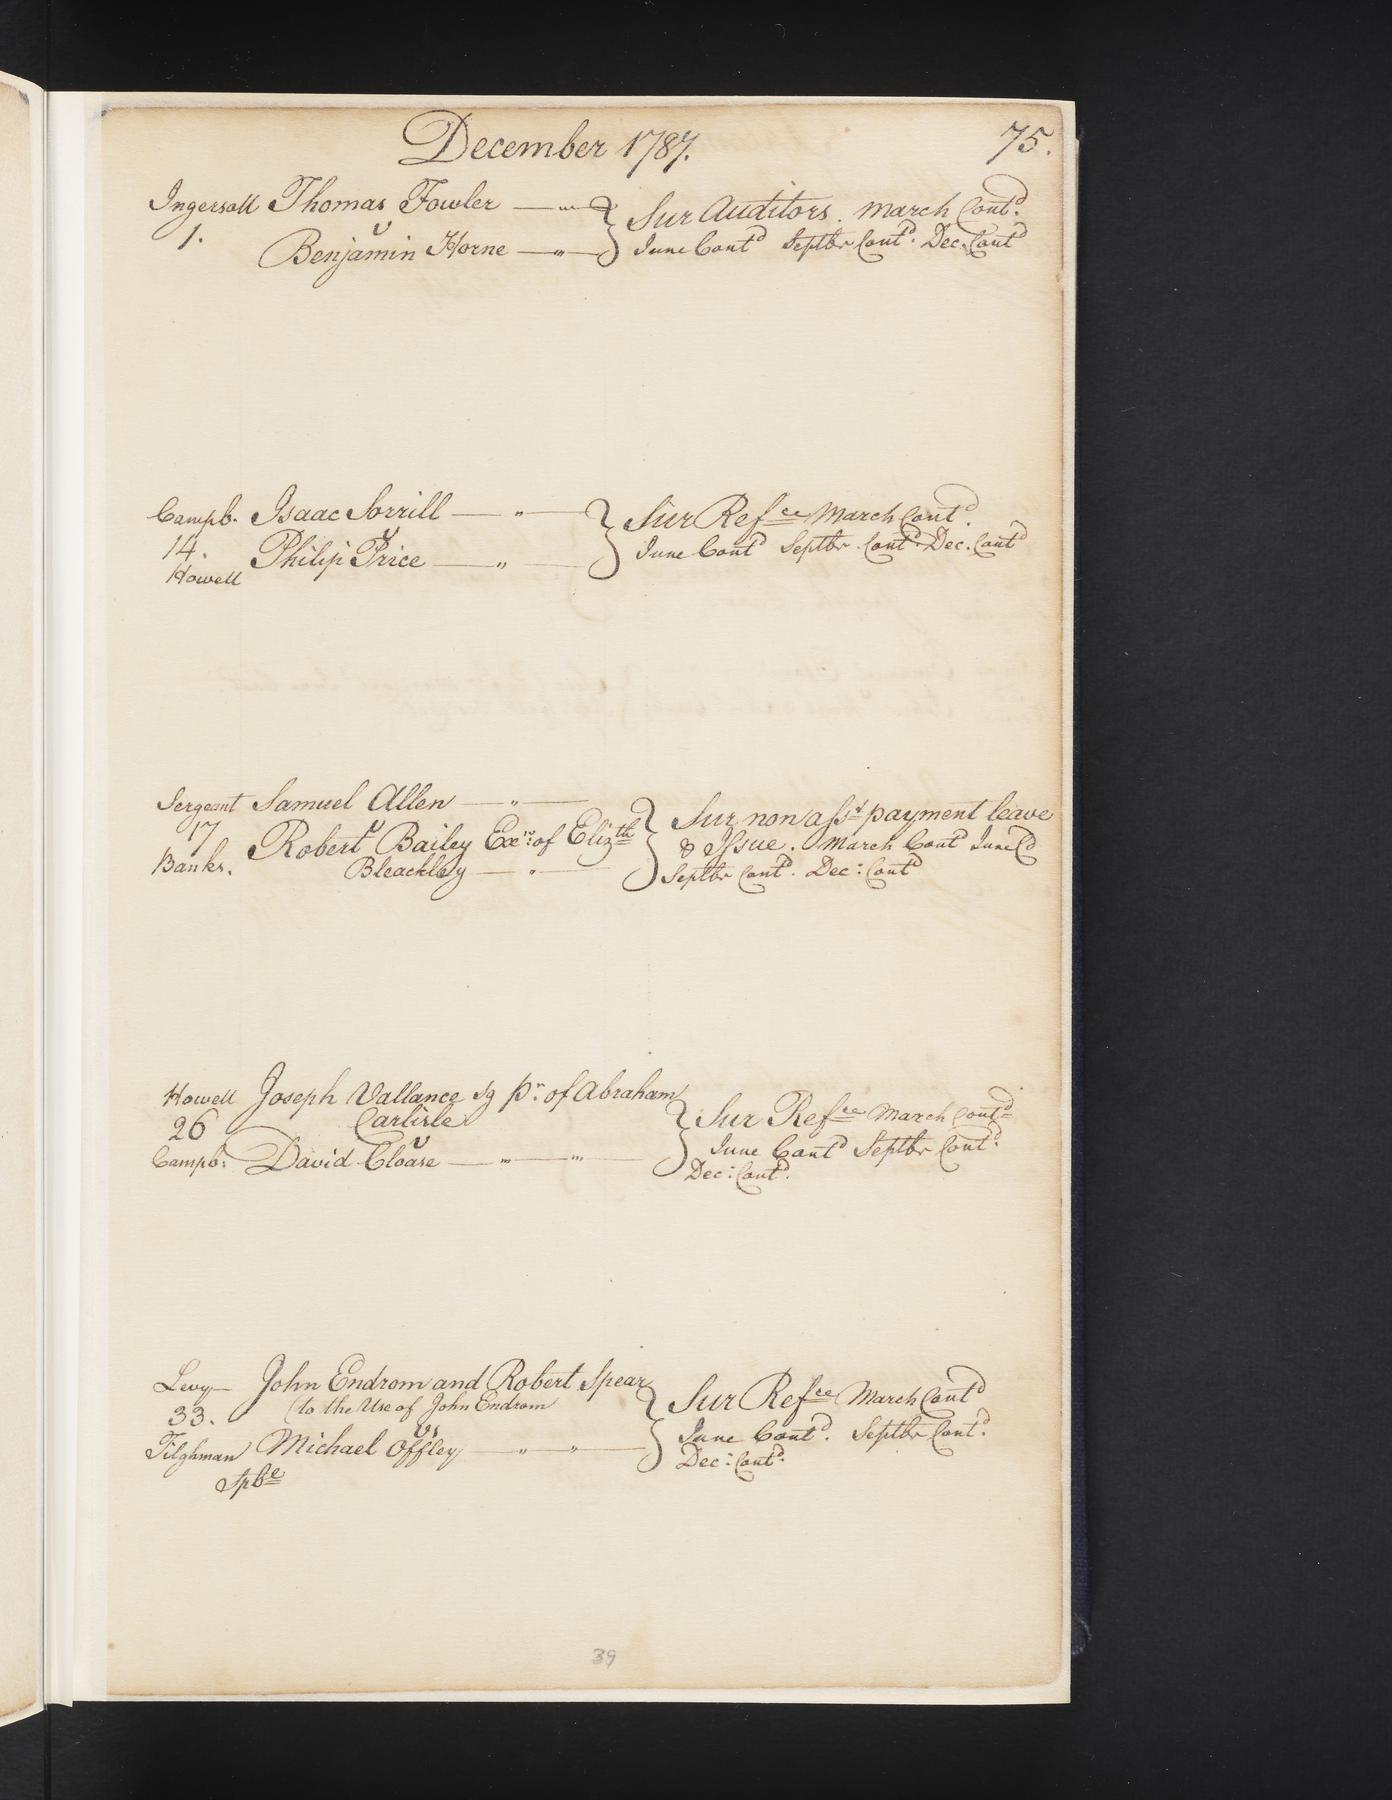 December 1787.
75.
Ingersoll Thomas Fowler — " — } Sur Auditors. March Contd.
1. v
Benjamin Horne — " — June Contd Septbr Contd. Dec. Contd
Campb. Isaac Sorrill — " — } Sur Refce March Contd.
14. v
Philip Price — " — June Contd Septbr Contd. Dec. Contd
Howell
Sergeant Samuel Allen — " — } Sur non asst payment leave
17 v
Robert Bailey Exr: of Elizth & Issue. March Contd June Cd
Banks. Bleackley — " — Septbr Contd. Dec: Contd
Howell Joseph Vallance Sg pr. of Abraham } Sur Refce March Contd
26 Carlisle
v June Contd Septbr Contd.
Campb: David Cloase — " — " — Dec: Contd.
Levy — John Endrom and Robert Spear } Sur Refce March Contd
33. (to the Use of John Endrom
vs June Contd. Septbr Contd.
Tilghman Michael Offley — " — " — Dec: Contd.
Spbe
39